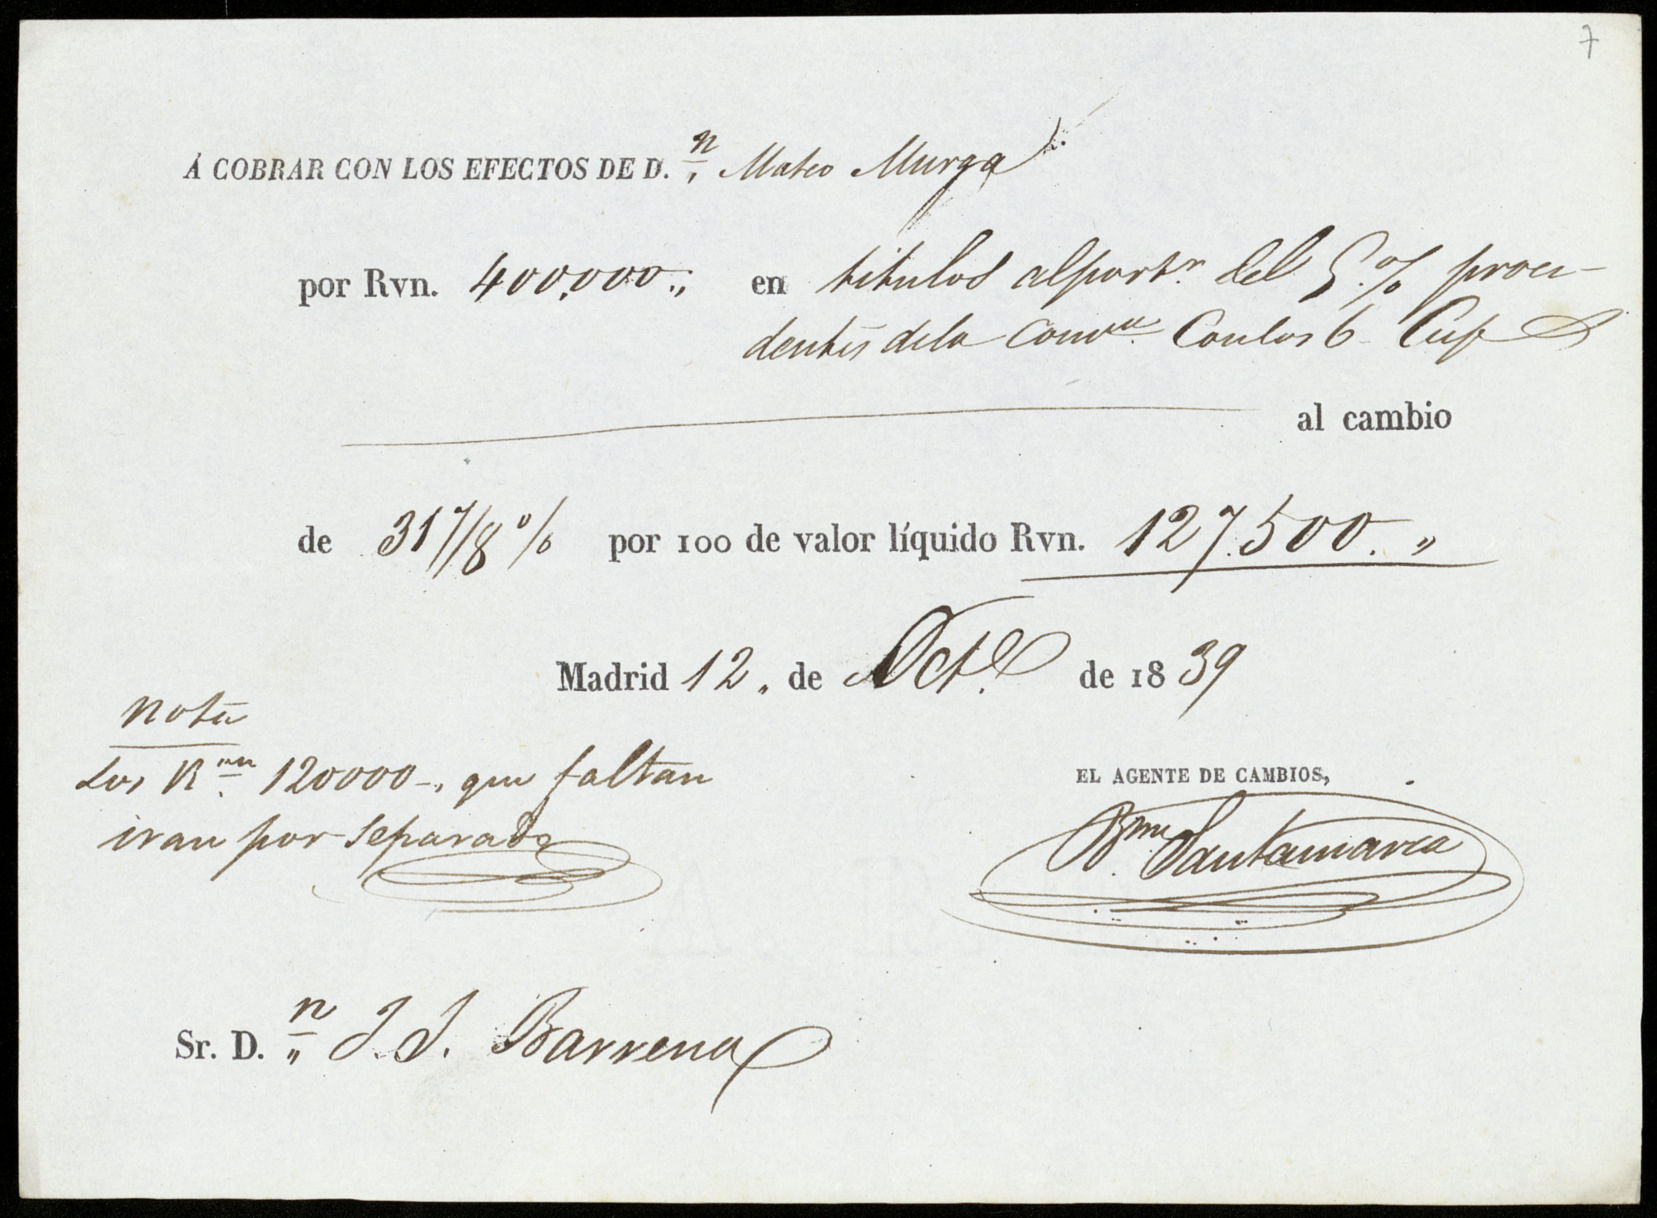 7
Á COBRAR CON LOS EFECTOS DE D.n Mateo Murga
por Rvn. 400,000,, en titulos alportr. del 5.% proce-
dentes dela Con los 6 Cup
al cambio
de 31 7/8 % por 100 de valor líquido Rvn. 127.500. ,,
Madrid 12,, de Oct.e de 1839
Nota
Los R.vn 120000-, que faltan
iran por separado
EL AGENTE DE CAMBIOS,
Santamarca
Sr. D.n J. J. Barrena